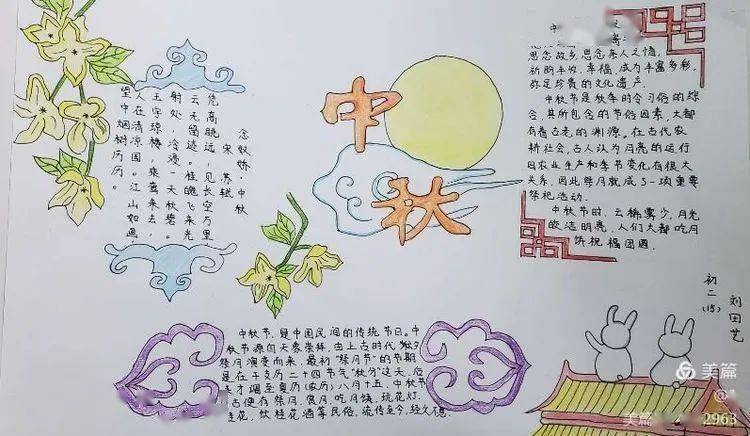 中秋
念奴娇·中秋
宋 苏轼
凭高眺远,见长空万里
云无留迹。桂魄飞来光
射处,冷浸一天秋碧。
玉宇琼楼,乘鸾来去,
人在清凉国。江山如画,
望中烟树历历。
思念故乡思念亲人之情,
祈盼丰收、幸福,成为丰富多彩,
弥足珍贵的文化遗产。
中秋节是秋季时令习俗的综
合,其所包含的节俗因素,大都
有着古老的渊源。在古代农
耕社会,古人认为月亮的运行
同农业生产和季节变化有很大
关系,因此祭月就成了一项重要
祭祀活动。
中秋节时,云稀雾少,月光
皎洁明亮,人们大都吃月
饼祝福团圆。
初二(15)
刘田艺
中秋节,是中国民间的传统节日。中
秋节源自天象崇拜,由上古时代秋夕
祭月演变而来。最初“祭月节”的节期
是在干支历二十四节气“秋分”这天,后
来才调至夏历(农历)八月十五。中秋节
自古便有祭月、赏月、吃月饼、玩花灯、
赏桂花、饮桂花酒等民俗,流传至今,经久不息。
美篇
美篇
2963